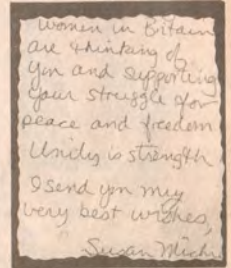 Women in Britain
are thinking of
you and supporting
your struggle for
peace and freedom
Unity is strength
I send you my
very best wishes,
Susan Michi